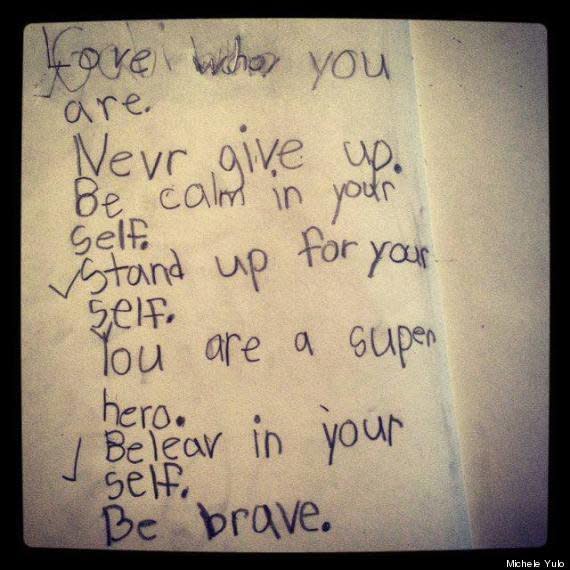 Love who you
are.
Nevr give up.
Be calm in your
self.
Stand up for your
self.
You are a super
hero.
Belear in your
self.
Be brave.
Michele Yulo